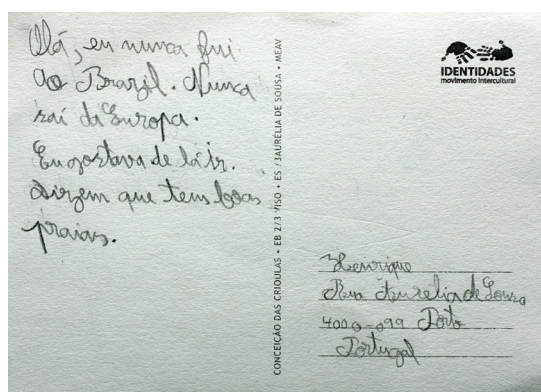 Olá, eu nunca fui
ao Brazil. Nunca
saí da Europa.
Eu gostava de lá ir.
Dizem que tem boas
praias.
CONCEIÇÃO DAS CRIOULAS • EB 2/3 VISO • ES /3AURÉLIA DE SOUSA • MEAV
IDENTIDADES
movimento intercultural
Henrique
Rua Aurelia de Souza
4000-099 Porto
Portugal